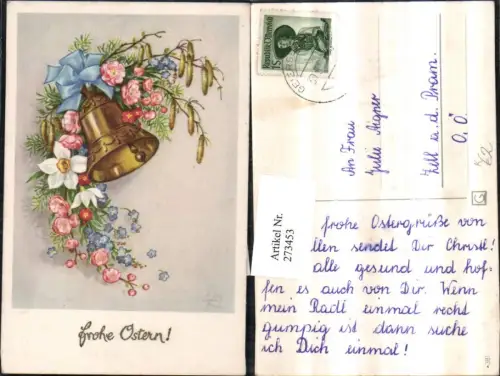 frohe Ostern!
An Frau
Julie Aigner
Zell a. d. Pram.
O. Ö
Artikel Nr.
273453
frohe Ostergrüße von
llen sendet Dir Christl!
alle gesund und hof-
fen es auch von Dir. Wenn
mein Radl einmal recht
gumpig ist dann suche
ich Dich einmal!